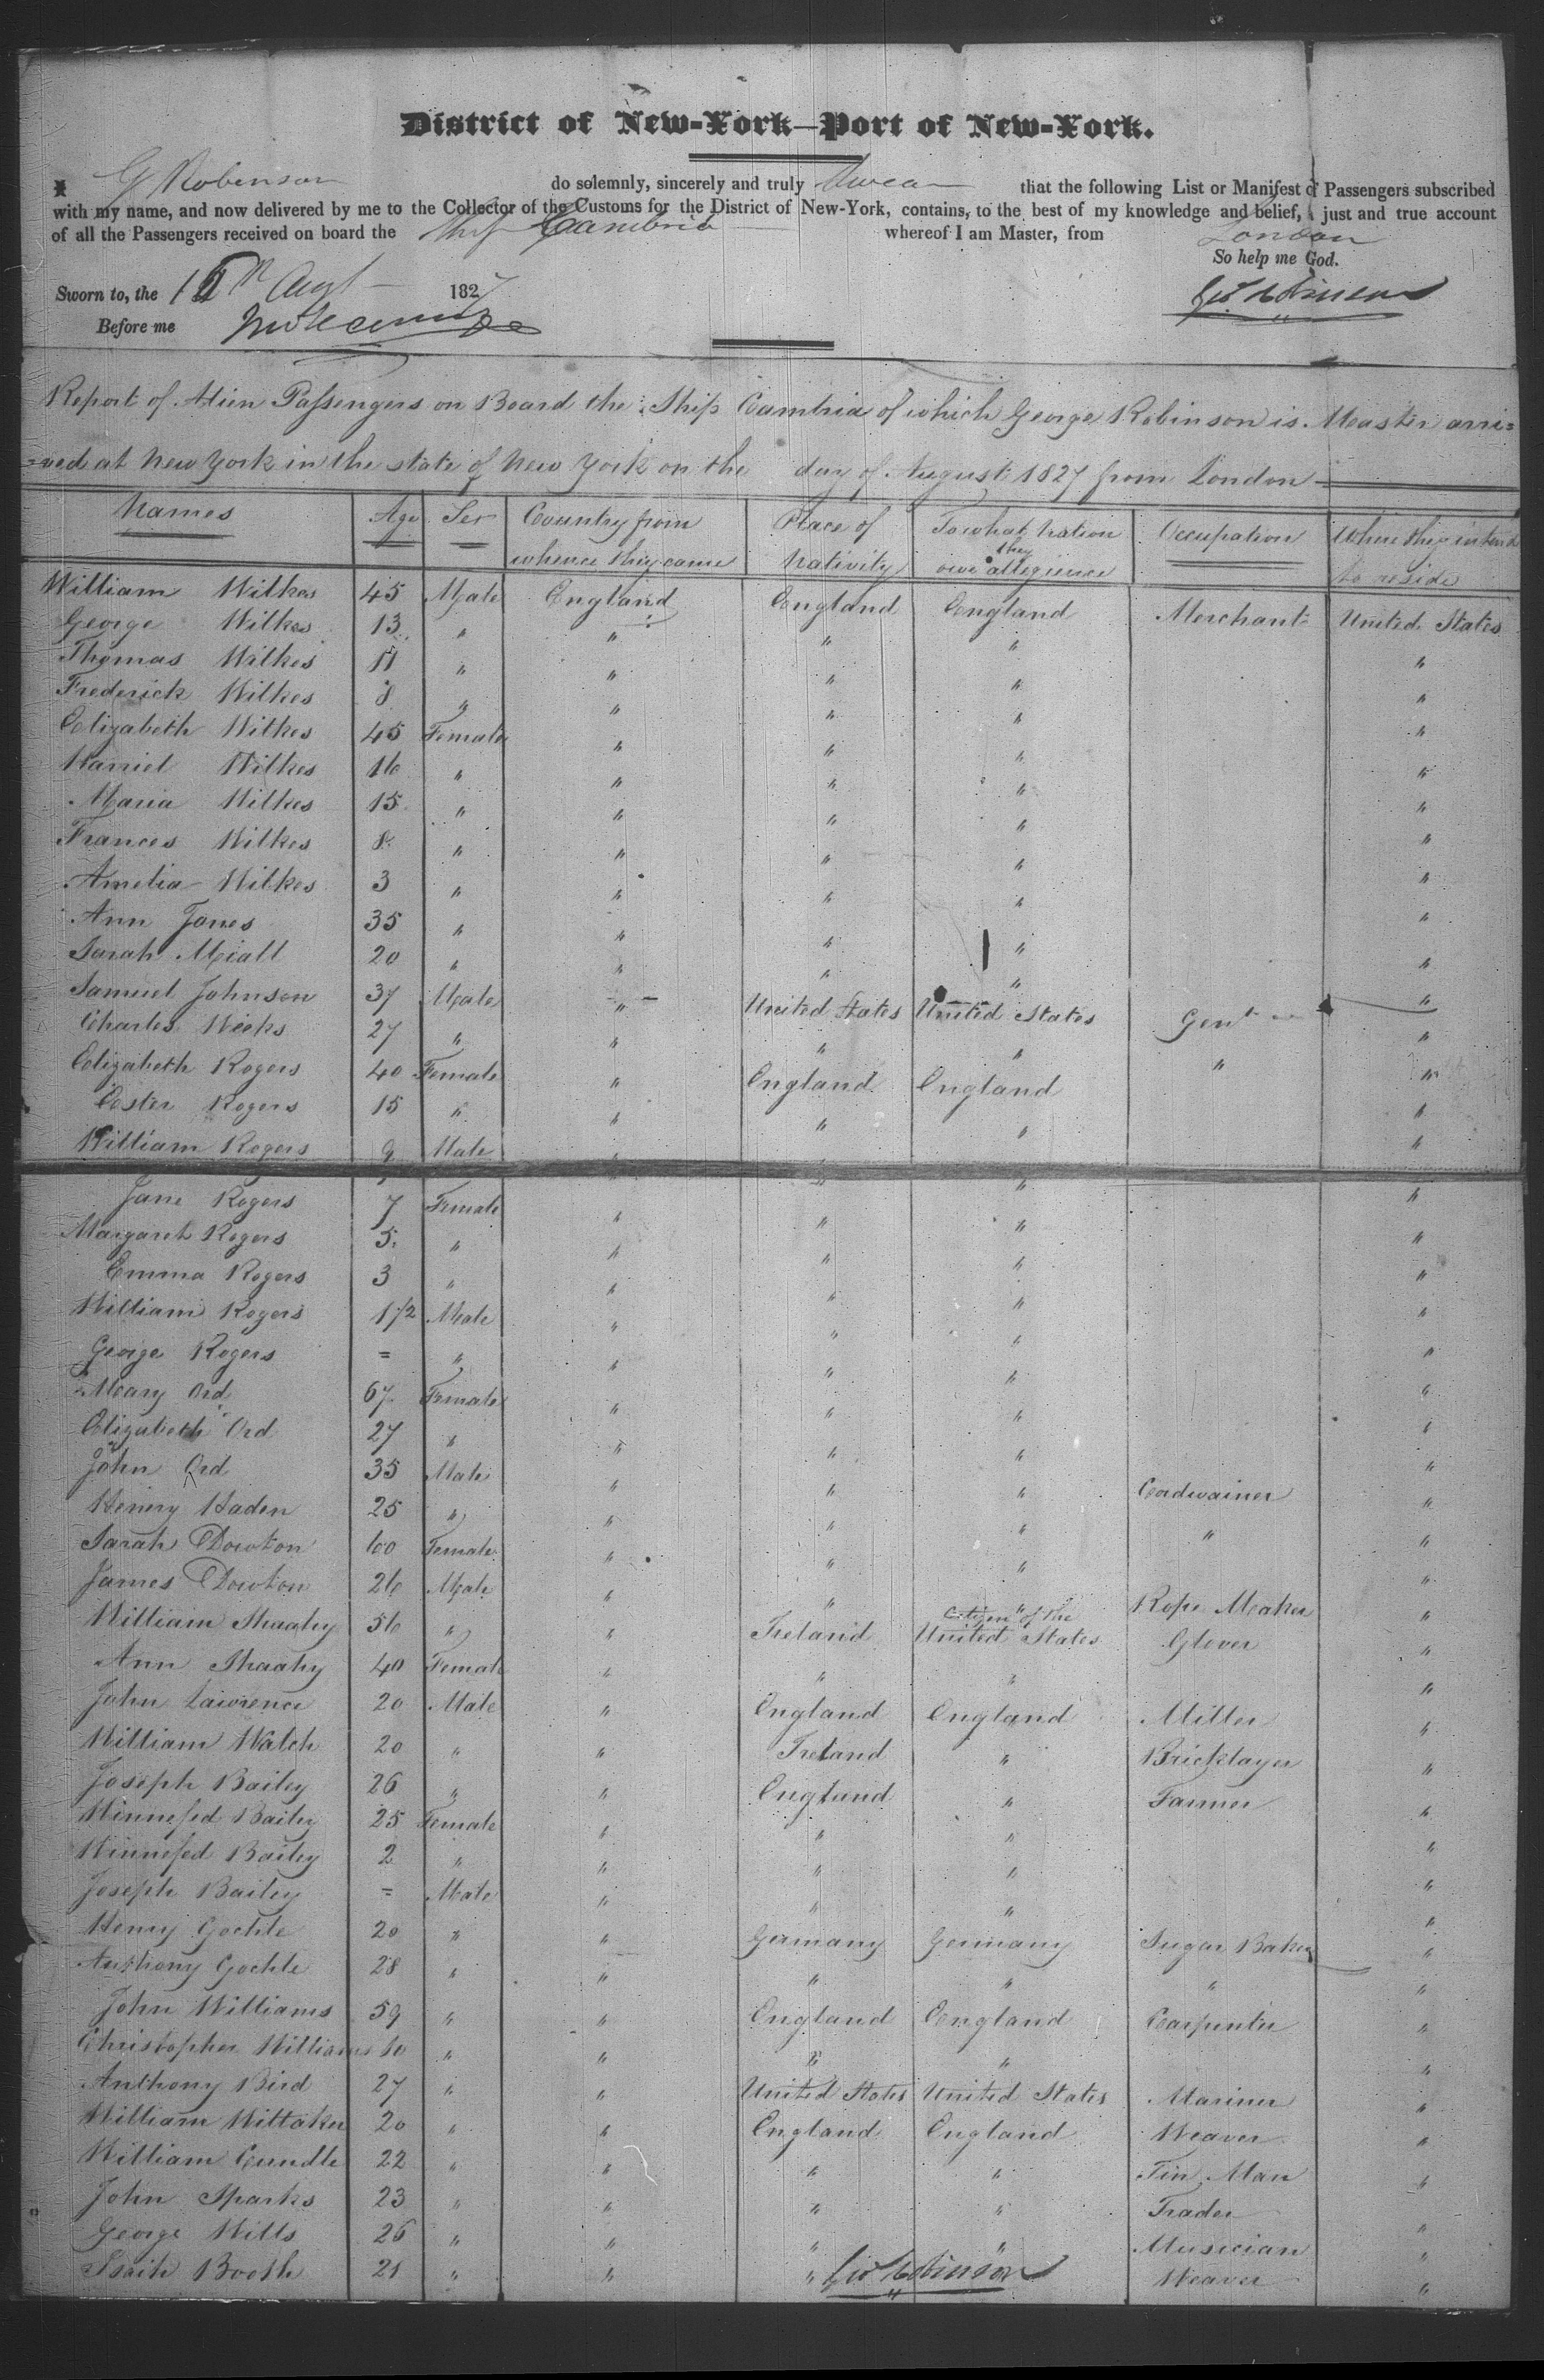 District of New-York—Port of New-York.
I G Robinson do solemnly, sincerely and truly Swear that the following List or Manifest of Passengers subscribed
with my name, and now delivered by me to the Collector of the Customs for the District of New-York, contains, to the best of my knowledge and belief, a just and true account
of all the Passengers received on board the Ship Cambria whereof I am Master, from London
So help me God.
Sworn to, the Augt 1827 Geo Robinson
Before me
Report of Alien Passengers on Board the Ship Cambria of which George Robinson is Master arri=
=ved at New York in the state of New York on the day of August 1827 from London
Names Age Sex Country from whence they came Place of Nativity To what Nation they owe allegience Occupation Where they intend to reside
William Wilkes 45 Male England England England Merchant United States
George Wilkes 13 " " " " "
Thomas Wilkes 11 " " " " "
Frederick Wilkes 8 " " " " "
Elizabeth Wilkes 45 Female " " " "
Harriet Wilkes 16 " " " " "
Maria Wilkes 15 " " " " "
Frances Wilkes 8 " " " " "
Amelia Wilkes 3 " " " " "
Ann Jones 35 " " " " "
Sarah Miall 20 " " " " "
Samuel Johnson 37 Male " United States United States Gent "
Charles Weeks 27 " " " " " "
Elizabeth Rogers 40 Female " England England "
Ester Rogers 15 " " " " "
William Rogers 9 Male " " " "
Jane Rogers 7 Female " " " "
Margaret Rogers 5 " " " " "
Emma Rogers 3 " " " " "
William Rogers 1 1/2 Male " " " "
George Rogers = " " " " "
Mary Ord 67 Female " " " "
Elizabeth Ord 27 " " " " "
John Ord 35 Male " " " Cordwainer "
Henery Haden 25 " " " " " "
Sarah Dowton 60 Female " " " "
James Dowton 26 Male " " " Rope Maker "
William Shaahy 56 " " Ireland Citizen of the United States Glover "
Ann Shaahy 40 Female " " " "
John Lawrence 20 Male " England England Miller "
William Walch 20 " " Ireland " Bricklayer "
Joseph Bailey 26 " " England " Farmer "
Winnefed Bailey 25 Female " " " "
Winnefed Bailey 2 " " " " "
Joseph Bailey = Male " " " "
Henry Goehle 20 " " Germany Germany Sugar Baker "
Anthony Goehle 28 " " " " " "
John Williams 59 " " England England Carpenter "
Christopher Williams 10 " " " " "
Anthony Bird 27 " " United States United States Mariner "
William Wittaker 20 " " England England Weaver "
William Cundle 22 " " " " Tin Man "
John Sparks 23 " " " " Trader "
George Wills 26 " " " " Musician "
Isaih Booth 21 " " " Weaver "
Geo Robinson